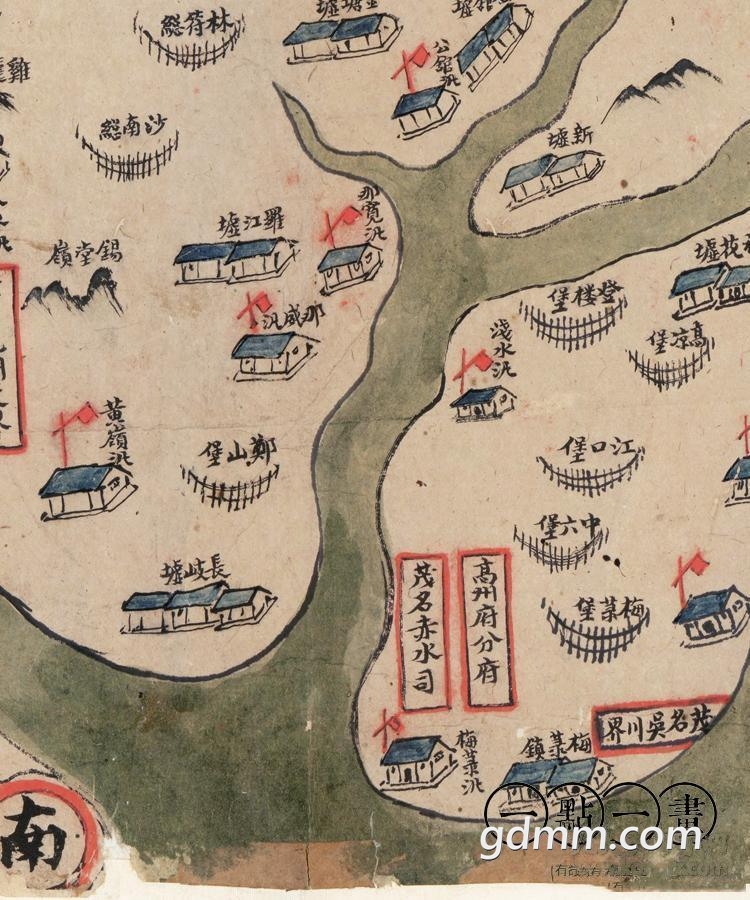 林符総
塘墟
銀墟
公舘汛
沙南総
新墟
那寛汛
羅江墟
錫堂嶺
那咸汛
登楼堡
花墟
高凉堡
淺水汛
黄嶺汛
鄭山堡
江口堡
中六堡
長岐墟
高州府分府
茂名赤水司
梅菉堡
茂名吳川界
梅菉汛
梅菉鎮
南
一點一畫
gdmm.com